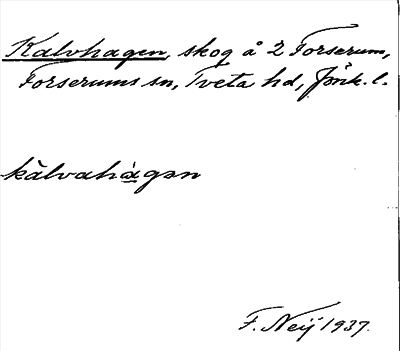 Kalvhagen, skog å 2 Forserum,
Forserums sn, Tveta hd, Jönk. l.
kălvahàgən
F. Neij 1937.